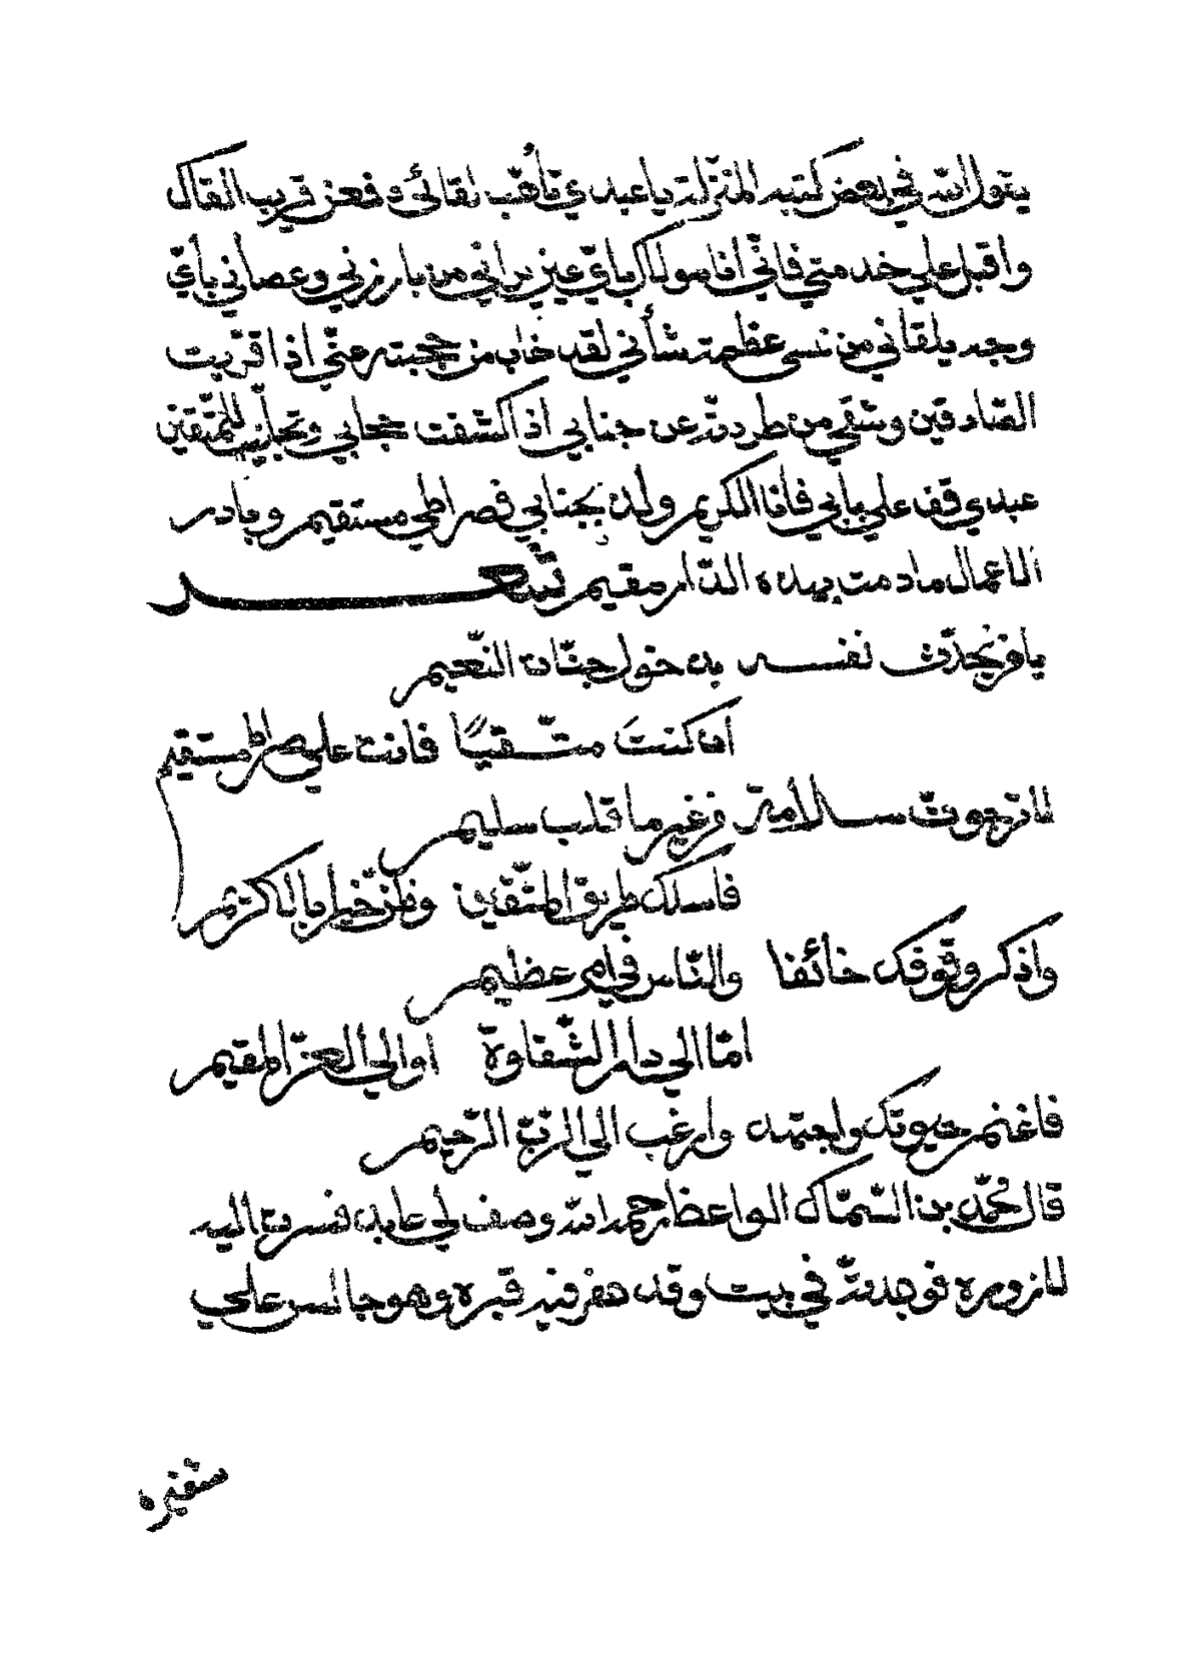 يقول الله في بعض كتبه المنزلة يا عبدي تأهب للقائي فعن قريب القاك
واقبل علي خدمتي فانّي انا مولاك باي عين يراني من بارزني وعصاني بأي
وجه يلقاني من نسى عظمة شأني لقد خاب من حجبته عنّي اذا قربت
الصّادقين وشقي من طردته عن جنابي اذا كشفت حجابي وتجلّيت للمتّقين
عبدي قف علي بابي فأنا الكريم ولذ بجنابي فصراطي مستقيم وبادر
الاعمال ما دمت بهذه الدّار مقيم شعر
يا من يحدّث نفسه بدخول جنّات النّعيم
ان كنت متّقيًا فانت علي صراط مستقيم
لا ترجون سلامة من غير ما قلب سليم
فاسلك طريق المتّقين وظنّ خيرا بالكريم
واذكر وقوفك خائفا والنّاس في امر عظيم
امّا الي دار الشّقاوة او الي العزّ المقيم
فاغنم حيوتك واجتهد وارغب الي الرّبّ الرّحيم
قال محمّد بن السّمّاك الواعظ رحمه الله وصف لي عابد فسرت اليه
لازوره فوجدته في بيت وقد حفر فيه قبره وهو جالس علي
شفيره